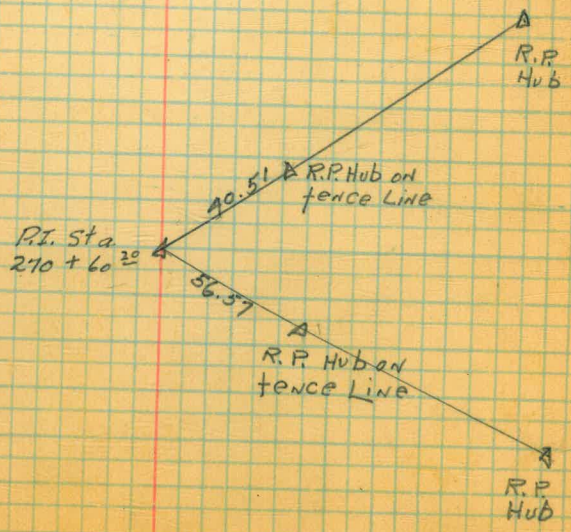 R.P.
Hub
40.51
R.P. Hub on
fence Line
P.I. Sta.
270 + 60 20
56.57
R.P. Hub on
fence Line
R.P.
Hub